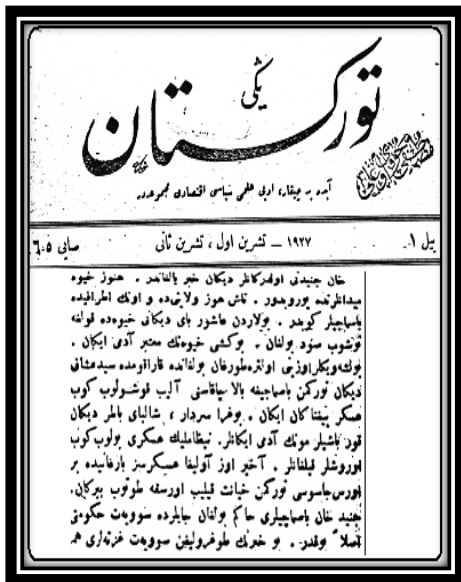 یکی
تورکستان
آیده بر چیقار، ادبی علمی سیاسی اقتصادی مجموعه‌در
ییل ١
١٩٢٧ – تشرین اول ، تشرین ثانی
صایی ٥-6
خان جنیدنی اولدرکانلر دیکان خبر یالفاندر . هنوز خیوه
میدانلرنده یورویدور . تاش هوز ولایتی‌ده و اونك اطرافیده
باسماچیلر کوبدر . بولاردن عاشور بای دیکانی خیوه‌ده قولفه
توشوب سؤد بولغان . بو کشی خیوه‌نك معتبر آدمی ایکان .
بولشه‌ویکلر اوزینی اولتره‌تورغان بولغانده قاراقومده سیدمثانی
دیکان تورکمن باسماچیغه بالا سیاقاسنی آلیب قوشولوب کوب
عسکر ییغناکان ایکان . بوغرا سردار ، شالبای باطر دیکان
قورباشیلر مونك آدمی ایکانلر. نظاملیك عسکری بولوب کوب
اوروشلر قیلغانلر . آخیر اوز آولیغا عسکرسز بارغانیده بر
اورس جاسوسی تورکمن خیانت قیلیب اورسقه طوتوب بیرکان.
جنید خان باسماچیلری حاکم بولغان جایلرده سوویه‌ت حکومتی
اصلا یوقدر . بو خبرنك طوغرولیغین سوویه‌ت غزته‌لری هم